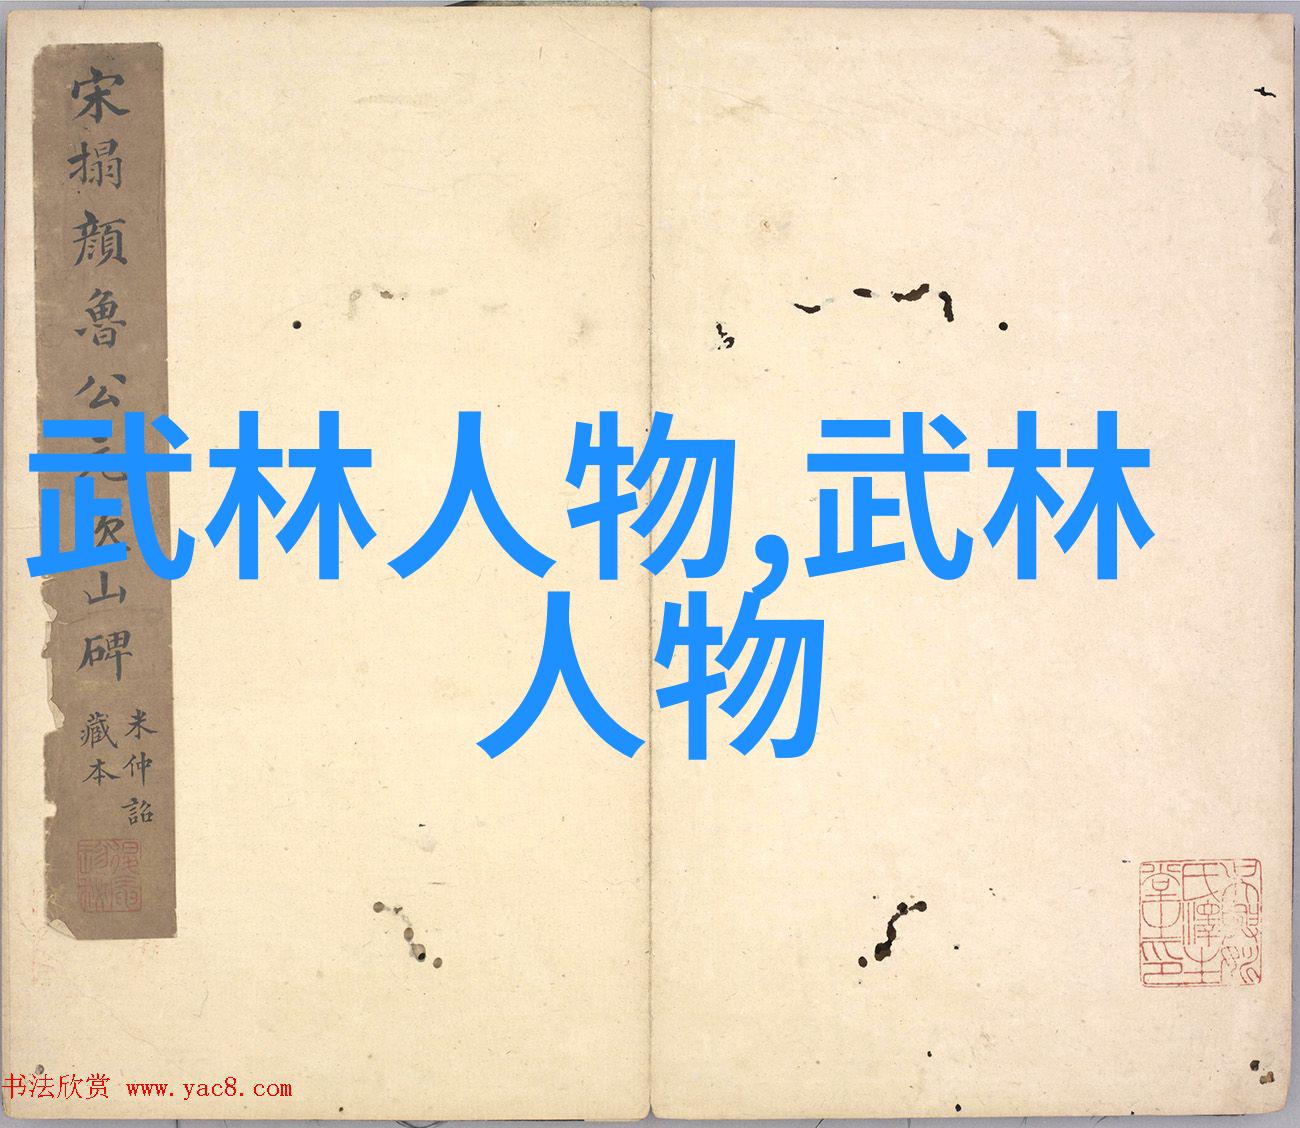 宋搨顏魯公元次山碑
米仲詔
藏本
武林人物,武林
人物
書法欣赏 www.yac8.com